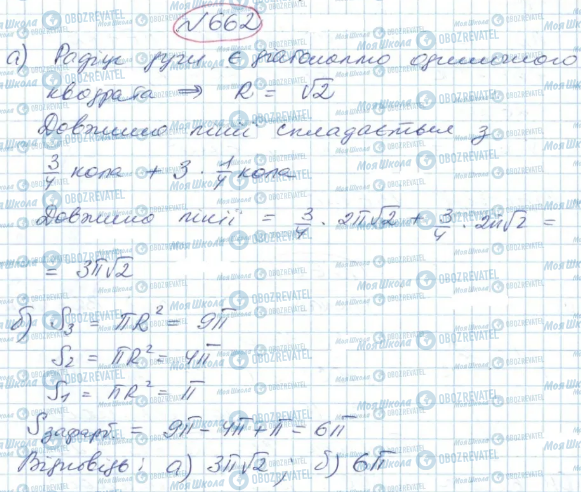 №662
а) Радіус дуги є діагоналлю одиничного
квадрата ⇒ R = √2
Довжина лінії складається з
3/4 кола + 3 · 1/4 кола
Довжина лінії = 3/4 · 2π√2 + 3/4 · 2π√2 =
= 3π√2
б) S₃ = πR² = 9π
S₂ = πR² = 4π
S₁ = πR² = π
Sзафарб. = 9π - 4π + π = 6π
Відповідь: а) 3π√2; б) 6π
Моя Школа OBOZREVATEL